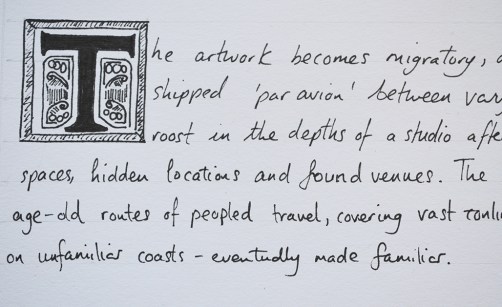 The artwork becomes migratory,
shipped 'par avion' between
roost in the depths of a studio
spaces, hidden locations and found venues. The
age-old routes of peopled travel, covering vast
on unfamiliar coasts - eventually made familiar.